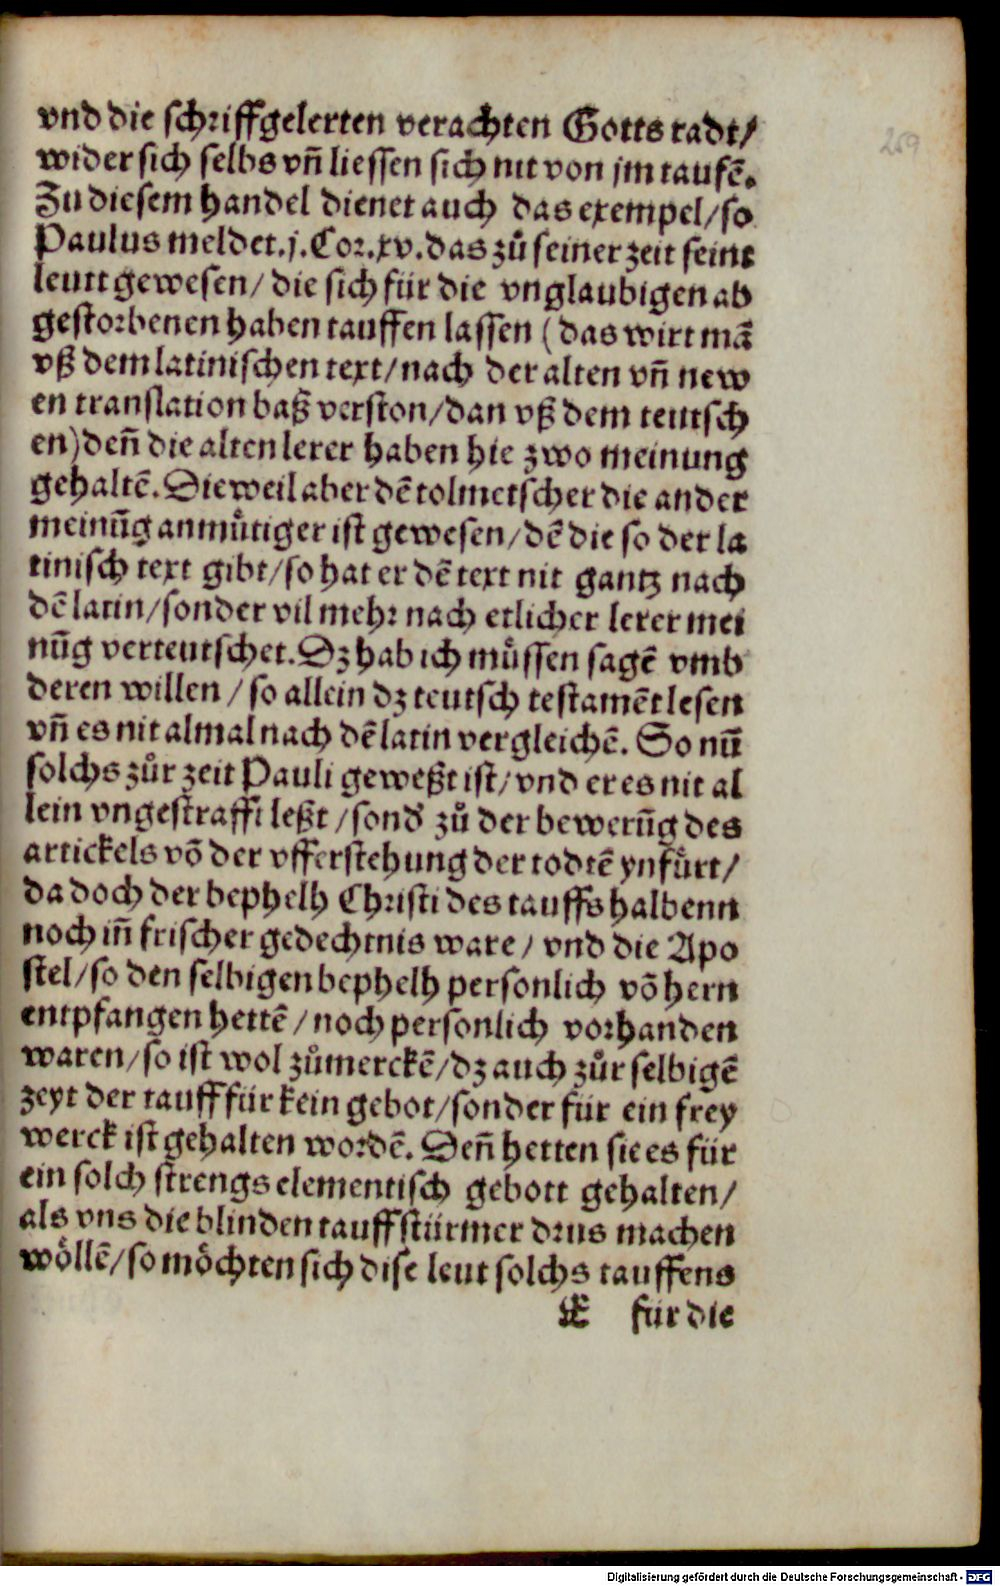 vnd die schriffgelerten verachten Gotts radt/
wider sich selbs vñ liessen sich nit von jm taufē.
Zu diesem handel dienet auch das exempel/so
Paulus meldet.j.Cor.xv.das zů seiner zeit seint
leutt gewesen/ die sich für die vnglaubigen ab
gestorbenen haben tauffen lassen (das wirt mā
vß dem latinischen text/nach der alten vñ new
en translation baß verston/dan vß dem teutsch
en)deñ die alten lerer haben hie zwo meinung
gehaltē. Dieweil aber dē tolmetscher die ander
meinūg anmůtiger ist gewesen/dē die so der la
tinisch text gibt/so hat er dē text nit gantz nach
dē latin/sonder vil mehr nach etlicher lerer mei
nūg verteutschet. Dz hab ich můssen sagē vmb
deren willen / so allein dz teutsch testamēt lesen
vñ es nit almal nach dē latin vergleichē. So nū
solchs zůr zeit Pauli geweßt ist/vnd er es nit al
lein vngestrafft leßt /sond' zů der bewerūg des
artickels vō der vfferstehung der todtē ynfůrt/
da doch der bephelh Christi des tauffs halbenn
noch iñ frischer gedechtnis ware / vnd die Apo
stel/so den selbigen bephelh personlich vō hern
entpfangen hettē /noch personlich vorhanden
waren/so ist wol zůmerckē/dz auch zůr selbigē
zeyt der tauff für kein gebot/sonder für ein frey
werck ist gehalten wordē. Deñ hetten sie es für
ein solch strengs elementisch gebott gehalten/
als vns die blinden tauffstürmer drus machen
wöllē/so möchten sich dise leut solchs tauffens
E für die
259
Digitalisierung gefördert durch die Deutsche Forschungsgemeinschaft - DFG